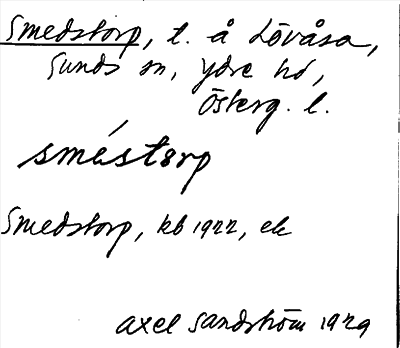 Smedstorp, t. å Lövåsa,
Sunds sn, Ydre hd,
Österg. l.
smé́storp
Smedstorp, kb 1922, ek
Axel Sandström 1929